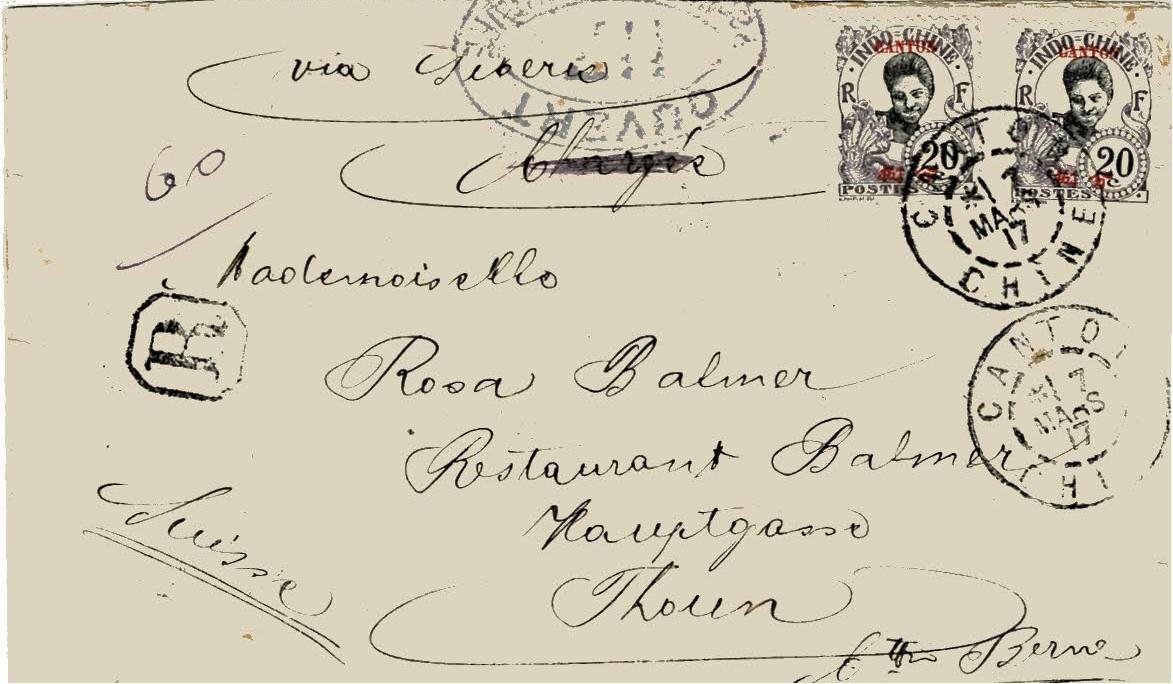 via Siberia
Chargé
60
INDO-CHINE
CANTON
R F
20 c.
POSTES
INDO-CHINE
CANTON
R F
20 c.
POSTES
CANTON
7
MARS
17
CHINE
OUVERT
Mademoiselle
R
Rosa Balmer
CANTON
7
MARS
17
CHI
Restaurant Balmer
Hauptgasse
Suisse
Thoun
Ctn Berne